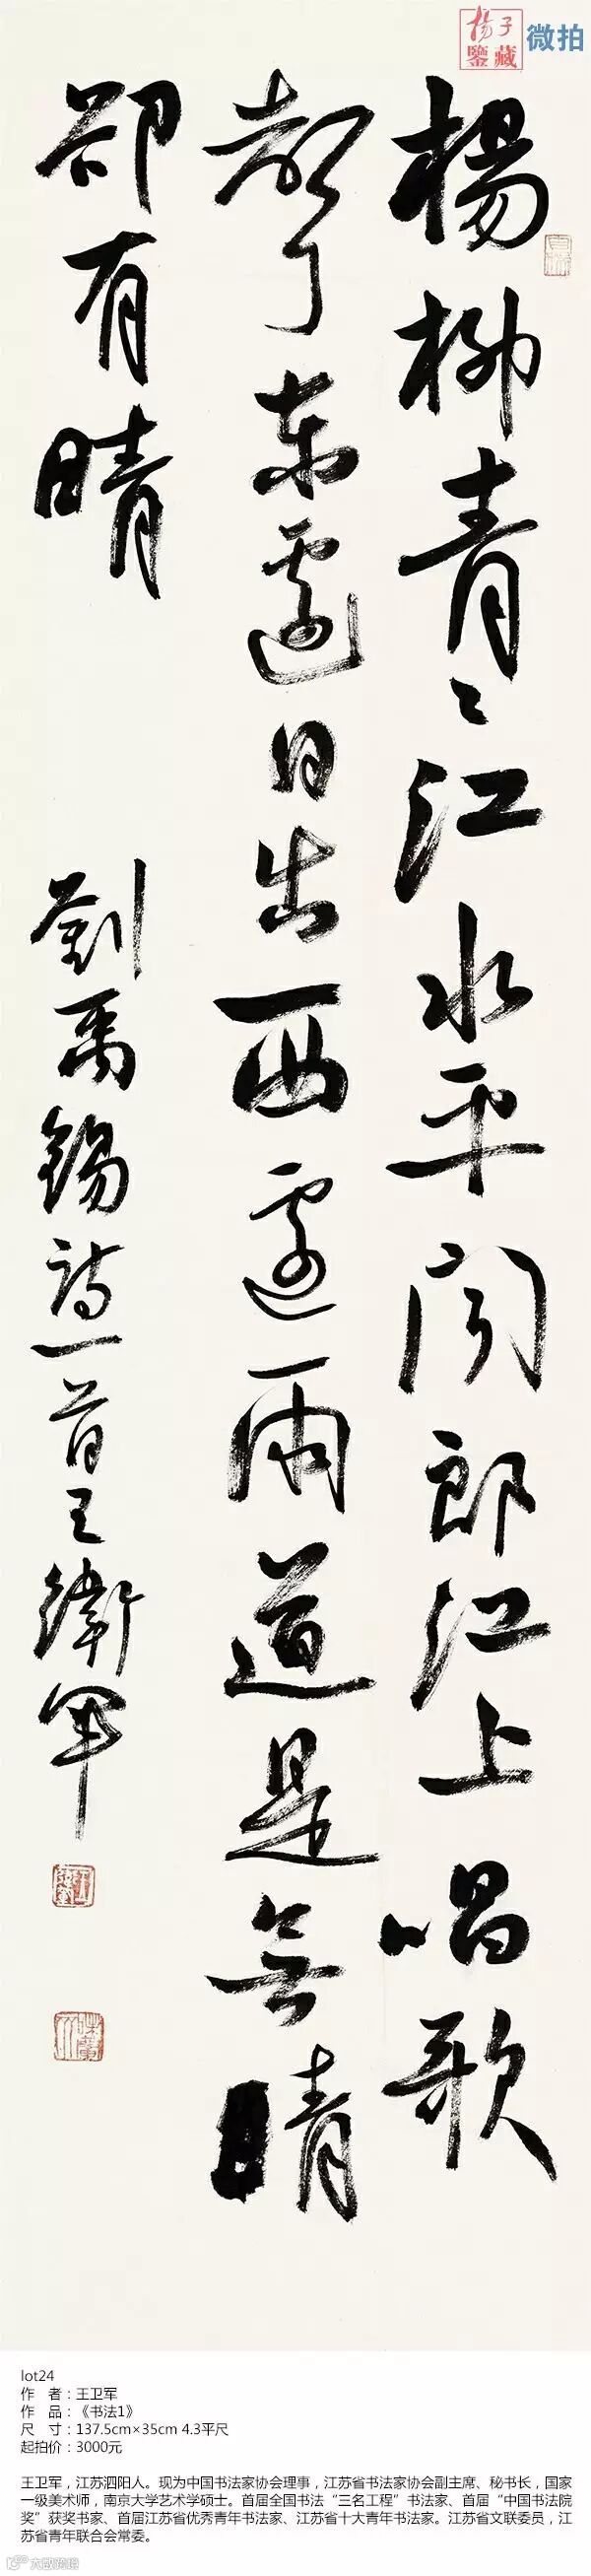 揚子
鑒藏
微拍
楊柳青〻江水平闻郎江上唱歌
聲东邊日出西邊雨道是無晴
卻有晴
劉禹錫詩一首王衛军
lot24
作 者：王卫军
作 品：《书法1》
尺 寸：137.5cm×35cm 4.3平尺
起拍价：3000元
王卫军，江苏泗阳人。现为中国书法家协会理事，江苏省书法家协会副主席、秘书长，国家
一级美术师，南京大学艺术学硕士。首届全国书法“三名工程”书法家、首届“中国书法院
奖”获奖书家、首届江苏省优秀青年书法家、江苏省十大青年书法家。江苏省文联委员，江
苏省青年联合会常委。